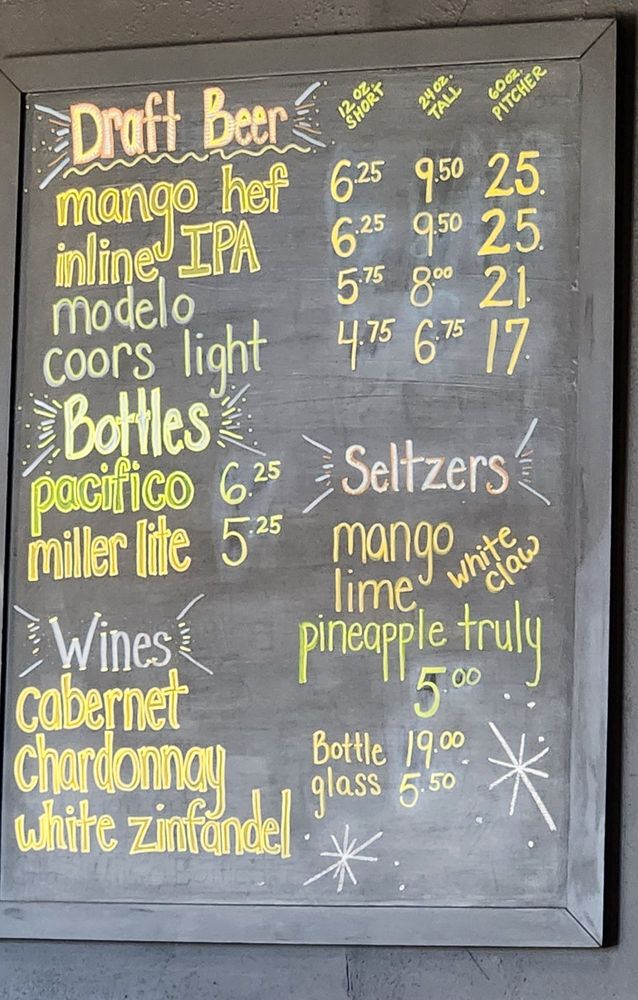 Draft Beer 12 oz. SHORT 24 oz. TALL 60 oz. PITCHER
mango hef 6.25 9.50 25.
inline IPA 6.25 9.50 25.
modelo 5.75 8.00 21.
coors light 4.75 6.75 17.
Bottles
pacifico 6.25
miller lite 5.25
Seltzers
mango white claw
lime
pineapple truly
5.00
Wines
cabernet
chardonnay
white zinfandel
Bottle 19.00
glass 5.50